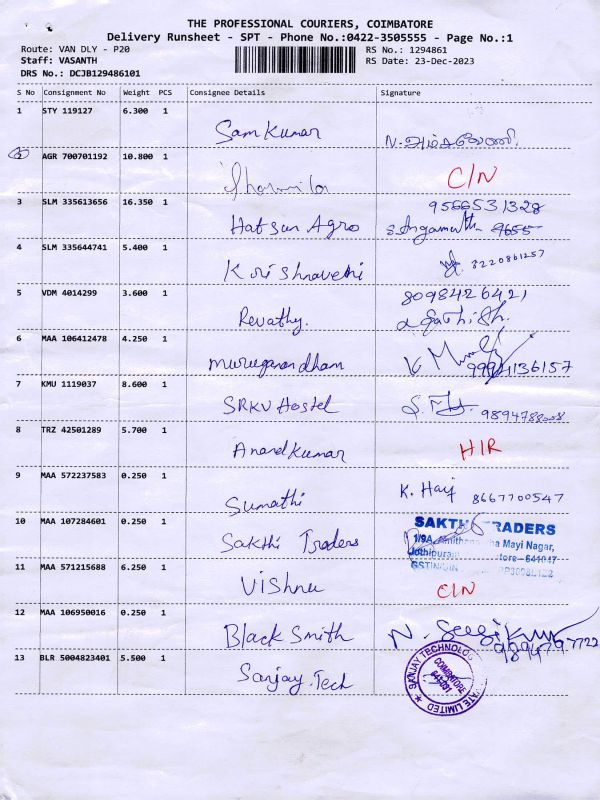 THE PROFESSIONAL COURIERS, COIMBATORE
Delivery Runsheet - SPT - Phone No.:0422-3505555 - Page No.:1
Route: VAN DLY - P20 RS No.: 1294861
Staff: VASANTH RS Date: 23-Dec-2023
DRS No.: DCJB129486101
S No Consignment No Weight PCS Consignee Details Signature
1 STY 119127 6.300 1
Samkumar
2 AGR 700701192 10.800 1
Sharmila C/N
3 SLM 335613656 16.350 1 9566531328
Hatsun Agro 9655
4 SLM 335644741 5.400 1
Krishnaveni 8220861257
5 VDM 4014299 3.600 1 8098426421
Revathy.
6 MAA 106412478 4.250 1
muruganandham 9994136157
7 KMU 1119037 8.600 1
SRKV Hostel
8 TRZ 42501289 5.700 1
Anandkumar H/R
9 MAA 572237583 0.250 1
Sumathi K. Hari 8667700547
10 MAA 107284601 0.250 1 SAKTHI TRADERS
Sakthi Traders Mayi Nagar,
11 MAA 571215688 6.250 1
Vishnu C/N
12 MAA 106950016 0.250 1
Black Smith
13 BLR 5004823401 5.500 1
Sanjay.Tech SANJAY TECHNOLO VATE LIMITED
COIMBATORE